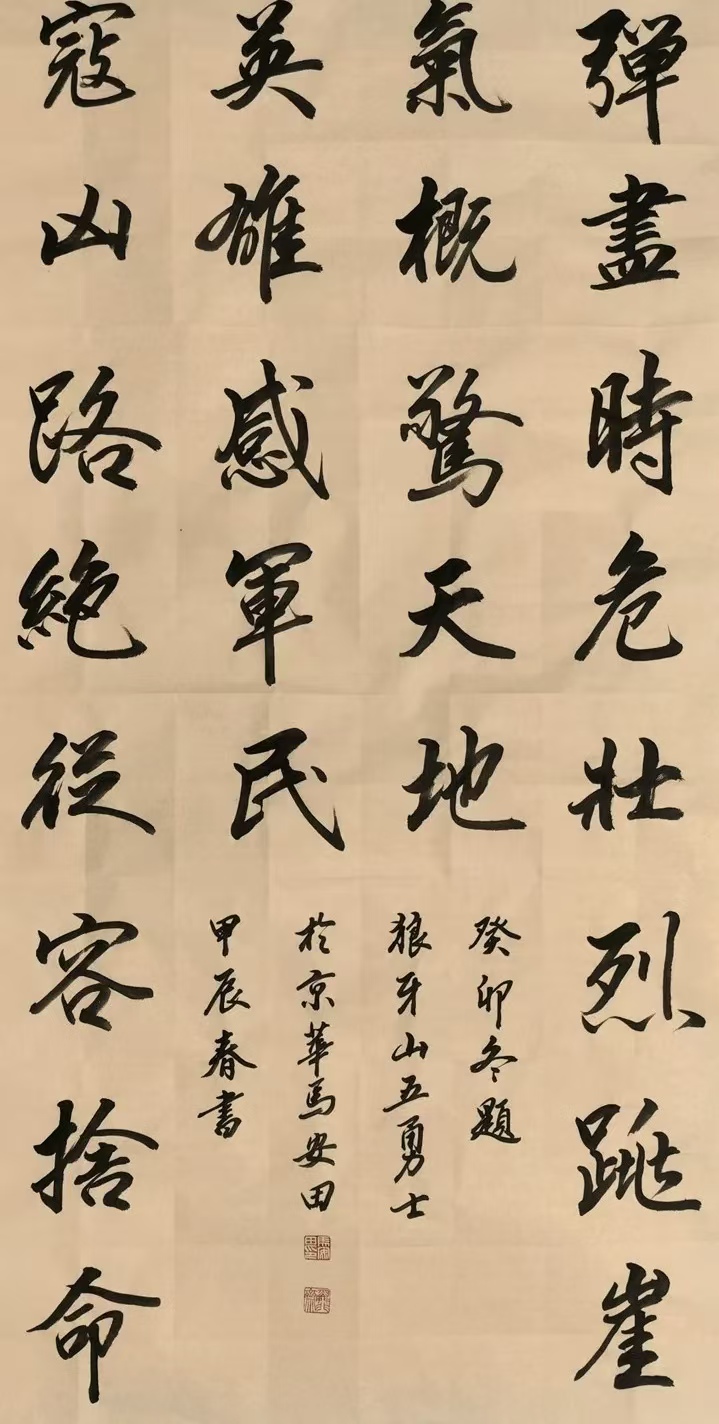 彈盡時危壯烈跳崖
氣概驚天地
癸卯冬題
狼牙山五勇士
寇凶路絕從容捨命
英雄感軍民
甲辰春書
於京華馬安田